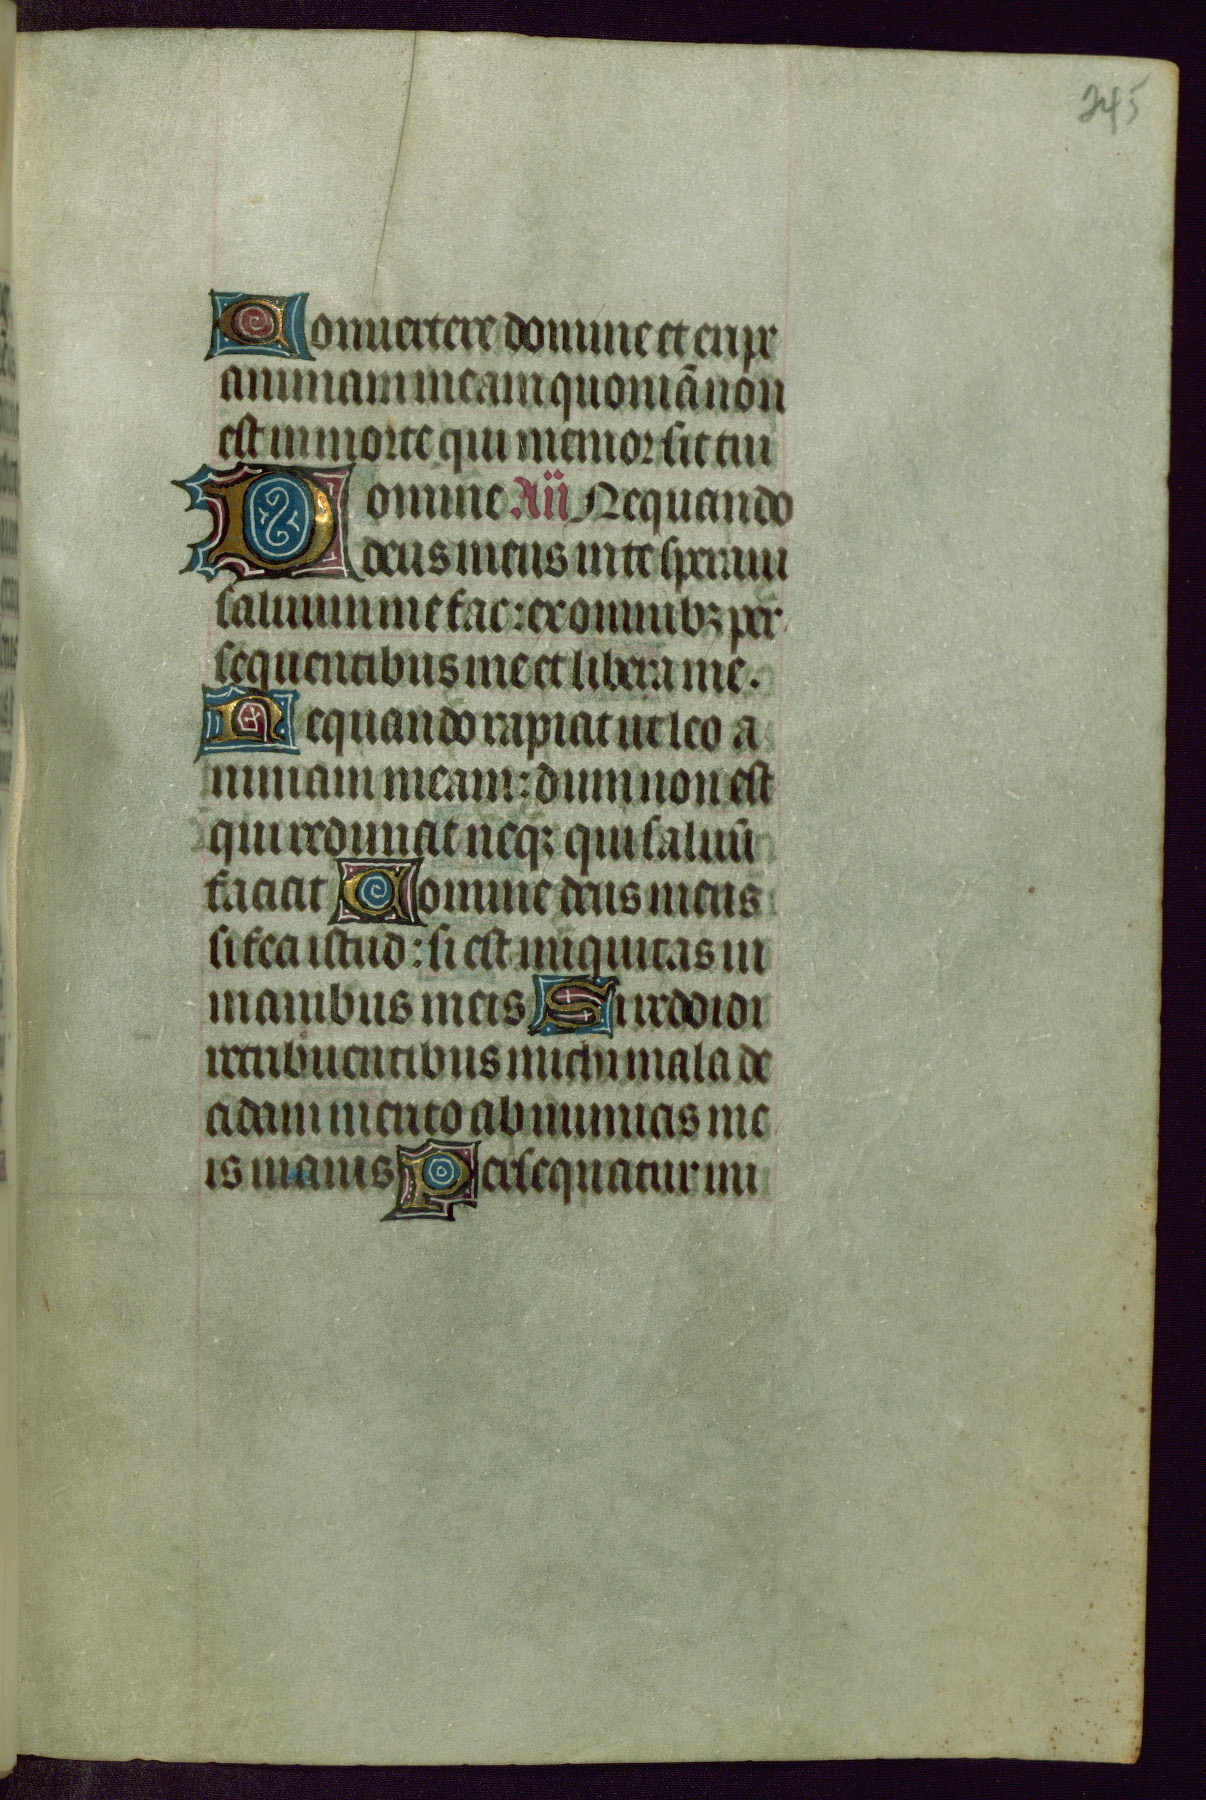 245
Conuertere domine et eripe
animam meam quoniā non
est in morte qui memor sit tui
Domine Añ Nequando
deus meus in te speraui
saluum me fac: ex omnibꝫ per
sequentibus me et libera me.
Nequando rapiat ut leo a
nimam meam: dum non est
qui redimat neqꝫ qui saluū
faciat Domine deus meus
si feci istud: si est iniquitas in
manibus meis Si reddidi
retribuentibus michi mala de
cidam merito ab inimicis me
is inanis Persequatur ini